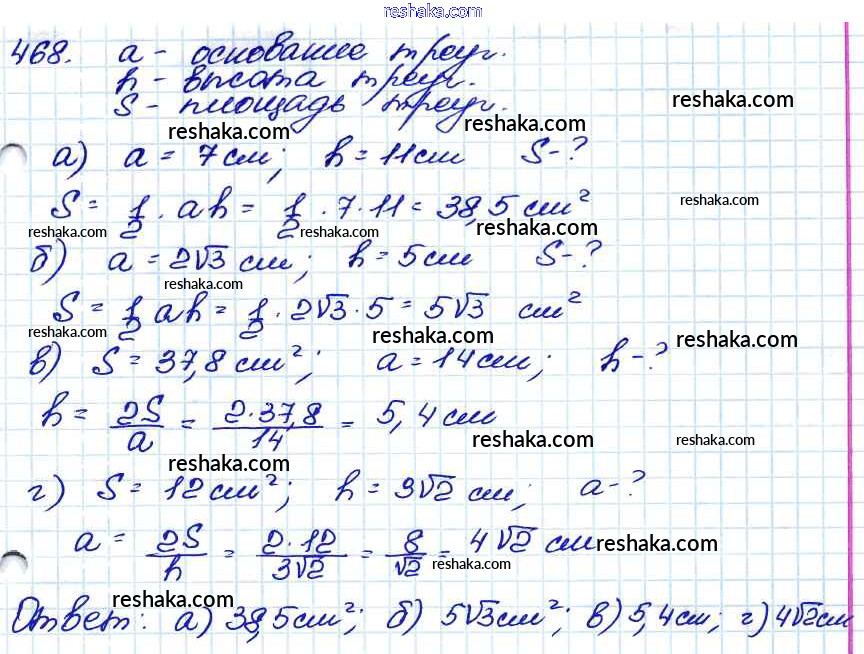 reshaka.com
468. a - основание треуг.
h - высота треуг.
S - площадь треуг.
reshaka.com
reshaka.com reshaka.com
а) a = 7 см; h = 11 см S - ?
S = 1/2 · ah = 1/2 · 7 · 11 = 38,5 см²
reshaka.com
reshaka.com reshaka.com reshaka.com
б) a = 2√3 см; h = 5 см S - ?
reshaka.com
S = 1/2 ah = 1/2 · 2√3 · 5 = 5√3 см²
reshaka.com reshaka.com reshaka.com
в) S = 37,8 см²; a = 14 см; h - ?
h = 2S/a = 2·37,8/14 = 5,4 см
reshaka.com reshaka.com
reshaka.com
г) S = 12 см²; h = 3√2 см; a - ?
a = 2S/h = 2·12/3√2 = 8/√2 = 4√2 см
reshaka.com
reshaka.com
reshaka.com reshaka.com
Ответ: а) 38,5 см²; б) 5√3 см²; в) 5,4 см; г) 4√2 см